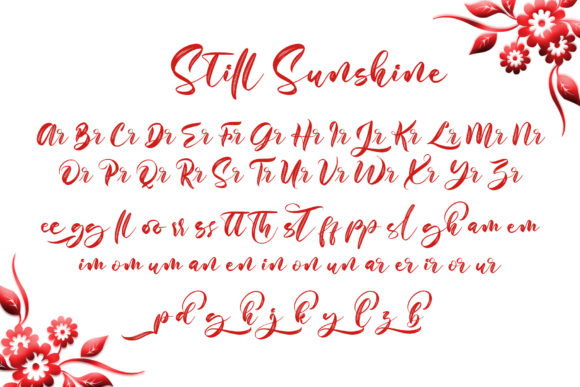 Still Sunshine
Ar Br Cr Dr Er Fr Gr Hr Ir Jr Kr Lr Mr Nr
Or Pr Qr Rr Sr Tr Ur Vr Wr Xr Yr Zr
ee gg ll oo rr ss tt th st ff pp sl gh am em
im om um an en in on un ar er ir or ur
p d g h j k y l z b